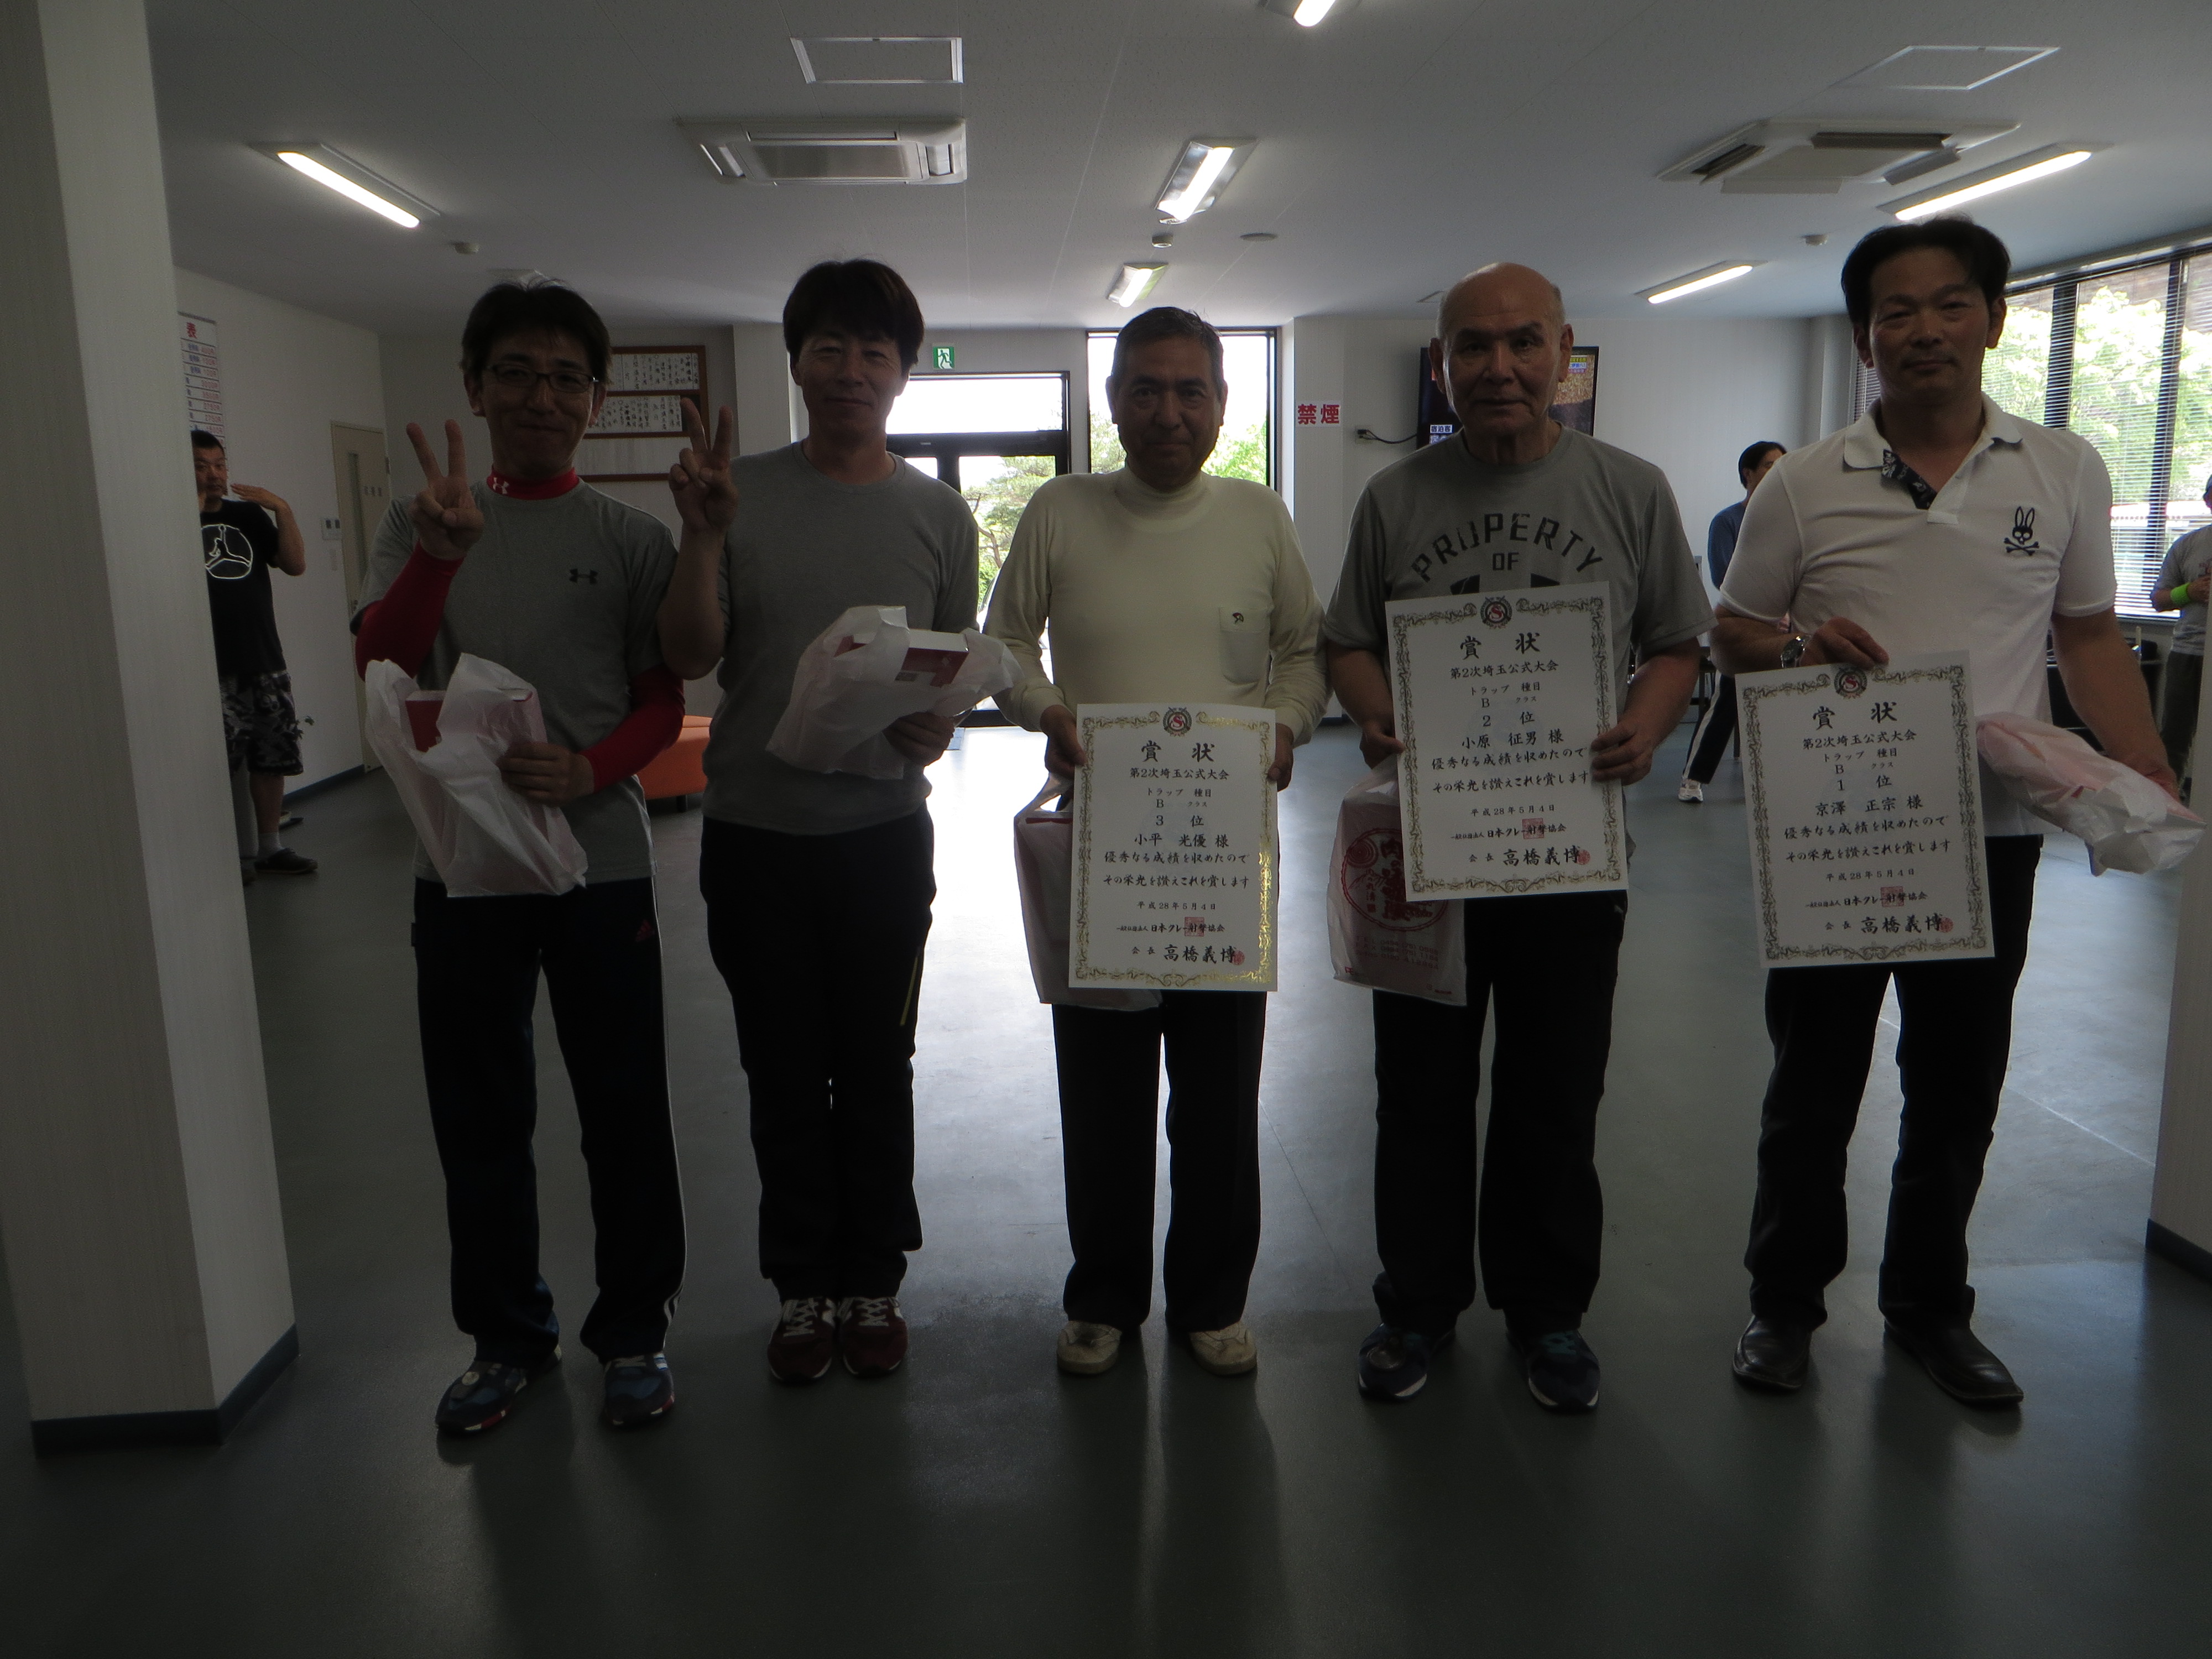 表
禁煙
PROPERTY
OF
賞 状
第2次埼玉公式大会
トラップ 種目
B クラス
3 位
小平 光優 様
優秀なる成績を収めたので
その栄光を讃えこれを賞します
平成28年5月4日
一般社団法人 日本クレー射撃協会
会長 高橋義博
賞 状
第2次埼玉公式大会
トラップ 種目
B クラス
2 位
小原 征男 様
優秀なる成績を収めたので
その栄光を讃えこれを賞します
平成28年5月4日
一般社団法人 日本クレー射撃協会
会長 高橋義博
賞 状
第2次埼玉公式大会
トラップ 種目
B クラス
1 位
京澤 正宗 様
優秀なる成績を収めたので
その栄光を讃えこれを賞します
平成28年5月4日
一般社団法人 日本クレー射撃協会
会長 高橋義博